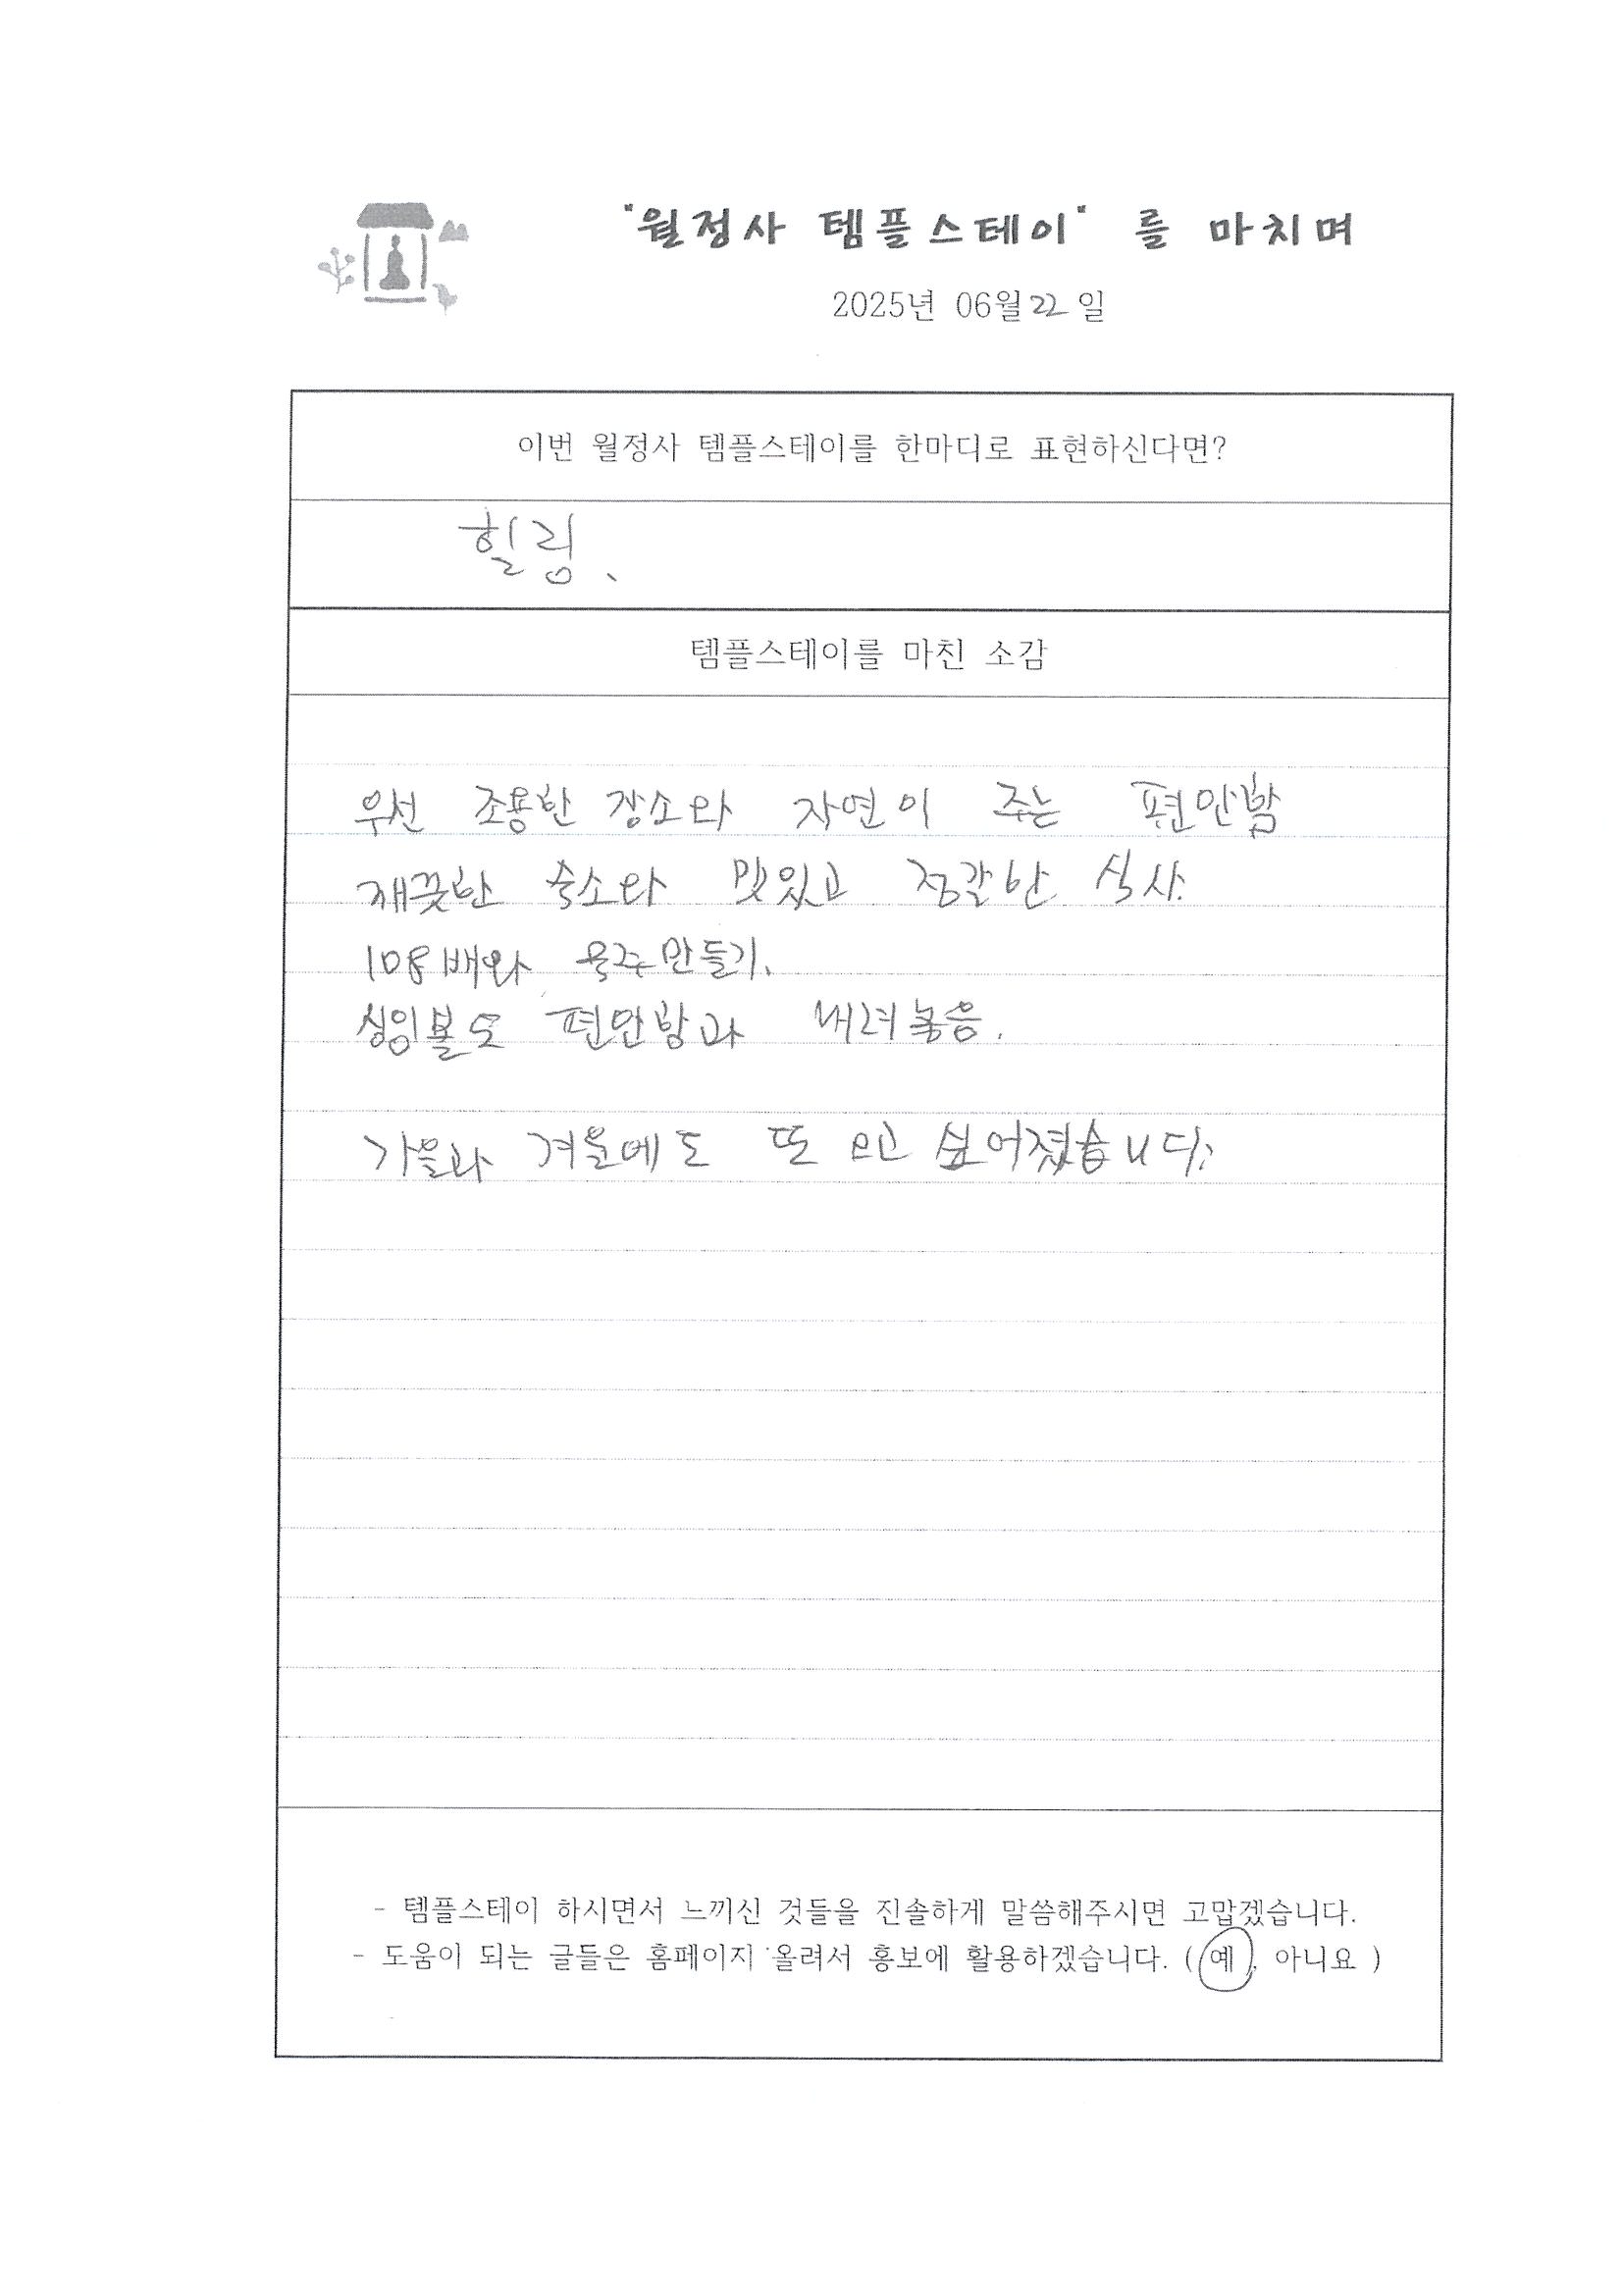 "월정사 템플스테이" 를 마치며
2025년 06월 22 일
이번 월정사 템플스테이를 한마디로 표현하신다면?
힐링.
템플스테이를 마친 소감
우선 조용한 장소와 자연이 주는 편안함
깨끗한 숙소와 맛있고 정갈한 식사.
108배와 염주만들기.
싱잉볼도 편안함과 내려놓음.
가을과 겨울에도 또 오고 싶어졌습니다.
- 템플스테이 하시면서 느끼신 것들을 진솔하게 말씀해주시면 고맙겠습니다.
- 도움이 되는 글들은 홈페이지 올려서 홍보에 활용하겠습니다. ( 예, 아니요 )